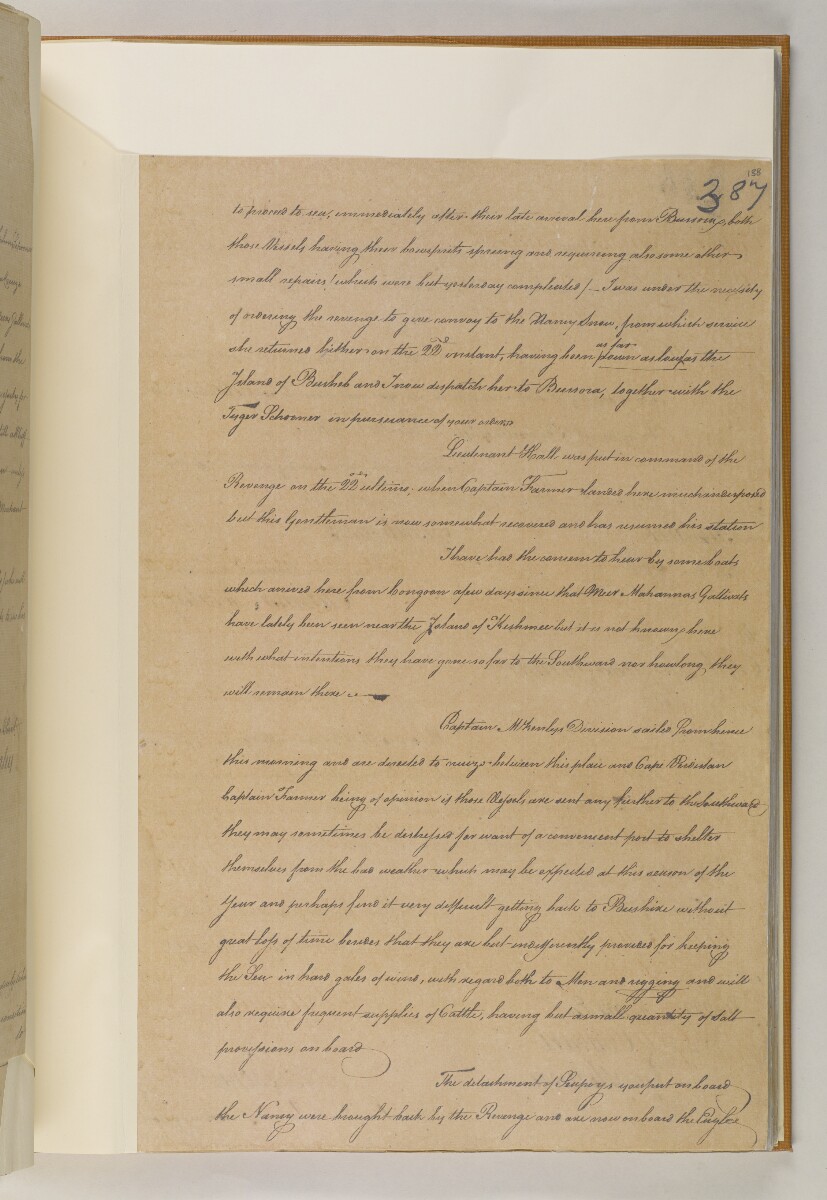 188
387
to proceed to sea, immediately after their late arrival here from Bussora, both
those Vessels having their bowsprits sprung and requiring also some other
small repairs / which were but yesterday compleated / — I was under the necessity
of ordering the revenge to give convoy to the Nancy Snow, from which service
she returned hither on the 22nd instant, having been down as low as far as the
Island of Busheb and I now dispatch her to Bussora, together with the
Tyger Schooner in pursuance of your orders
Lieutenant Hall was put in command of the
Revenge on the 22nd ultimo, when Captain Farmer landed here much indisposed
but this Gentleman is now somewhat recovered and has resumed his station
I have had the concern to hear by some boats
which arrived here from Congoon a few days since that Meer Mahannas Gallivats
have lately been seen near the Island of Kishmee but it is not known here
with what intentions they have gone so far to the Southward nor how long they
will remain there
Captain McKenlys Division sailed from hence
this morning and are directed to cruize between this place and Cape Verdistan
Captain Farmer being of opinion if those Vessels are sent any further to the Southward,
they may sometimes be distressed for want of a convenient port to shelter
themselves from the bad weather which may be expected at this season of the
Year and perhaps find it very difficult getting back to Bushire without
great loss of time besides that they are but indifferently provided for keeping
the Sea in hard gales of wind, with regard both to Men and rigging and will
also require frequent supplies of Cattle, having but a small quantity of salt
provisions on board
The detachment of Seapoys you put on board
the Nancy were brought back by the Revenge and are now on board the Eagle